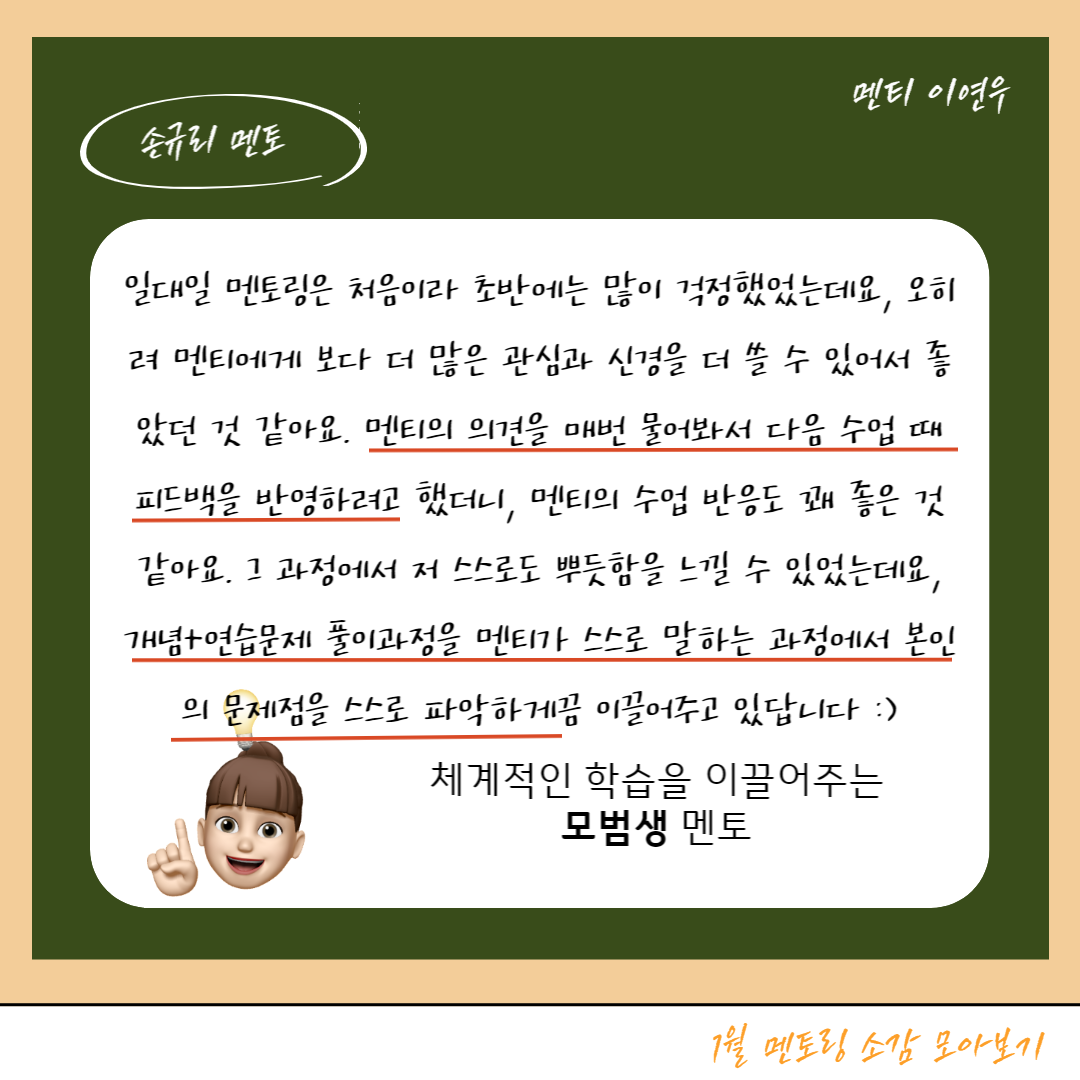 멘티 이연우
손규리 멘토
일대일 멘토링은 처음이라 초반에는 많이 걱정했었는데요, 오히
려 멘티에게 보다 더 많은 관심과 신경을 더 쓸 수 있어서 좋
았던 것 같아요. 멘티의 의견을 매번 물어봐서 다음 수업 때
피드백을 반영하려고 했더니, 멘티의 수업 반응도 꽤 좋은 것
같아요. 그 과정에서 저 스스로도 뿌듯함을 느낄 수 있었는데요,
개념+연습문제 풀이과정을 멘티가 스스로 말하는 과정에서 본인
의 문제점을 스스로 파악하게끔 이끌어주고 있답니다 :)
체계적인 학습을 이끌어주는
모범생 멘토
1월 멘토링 소감 모아보기